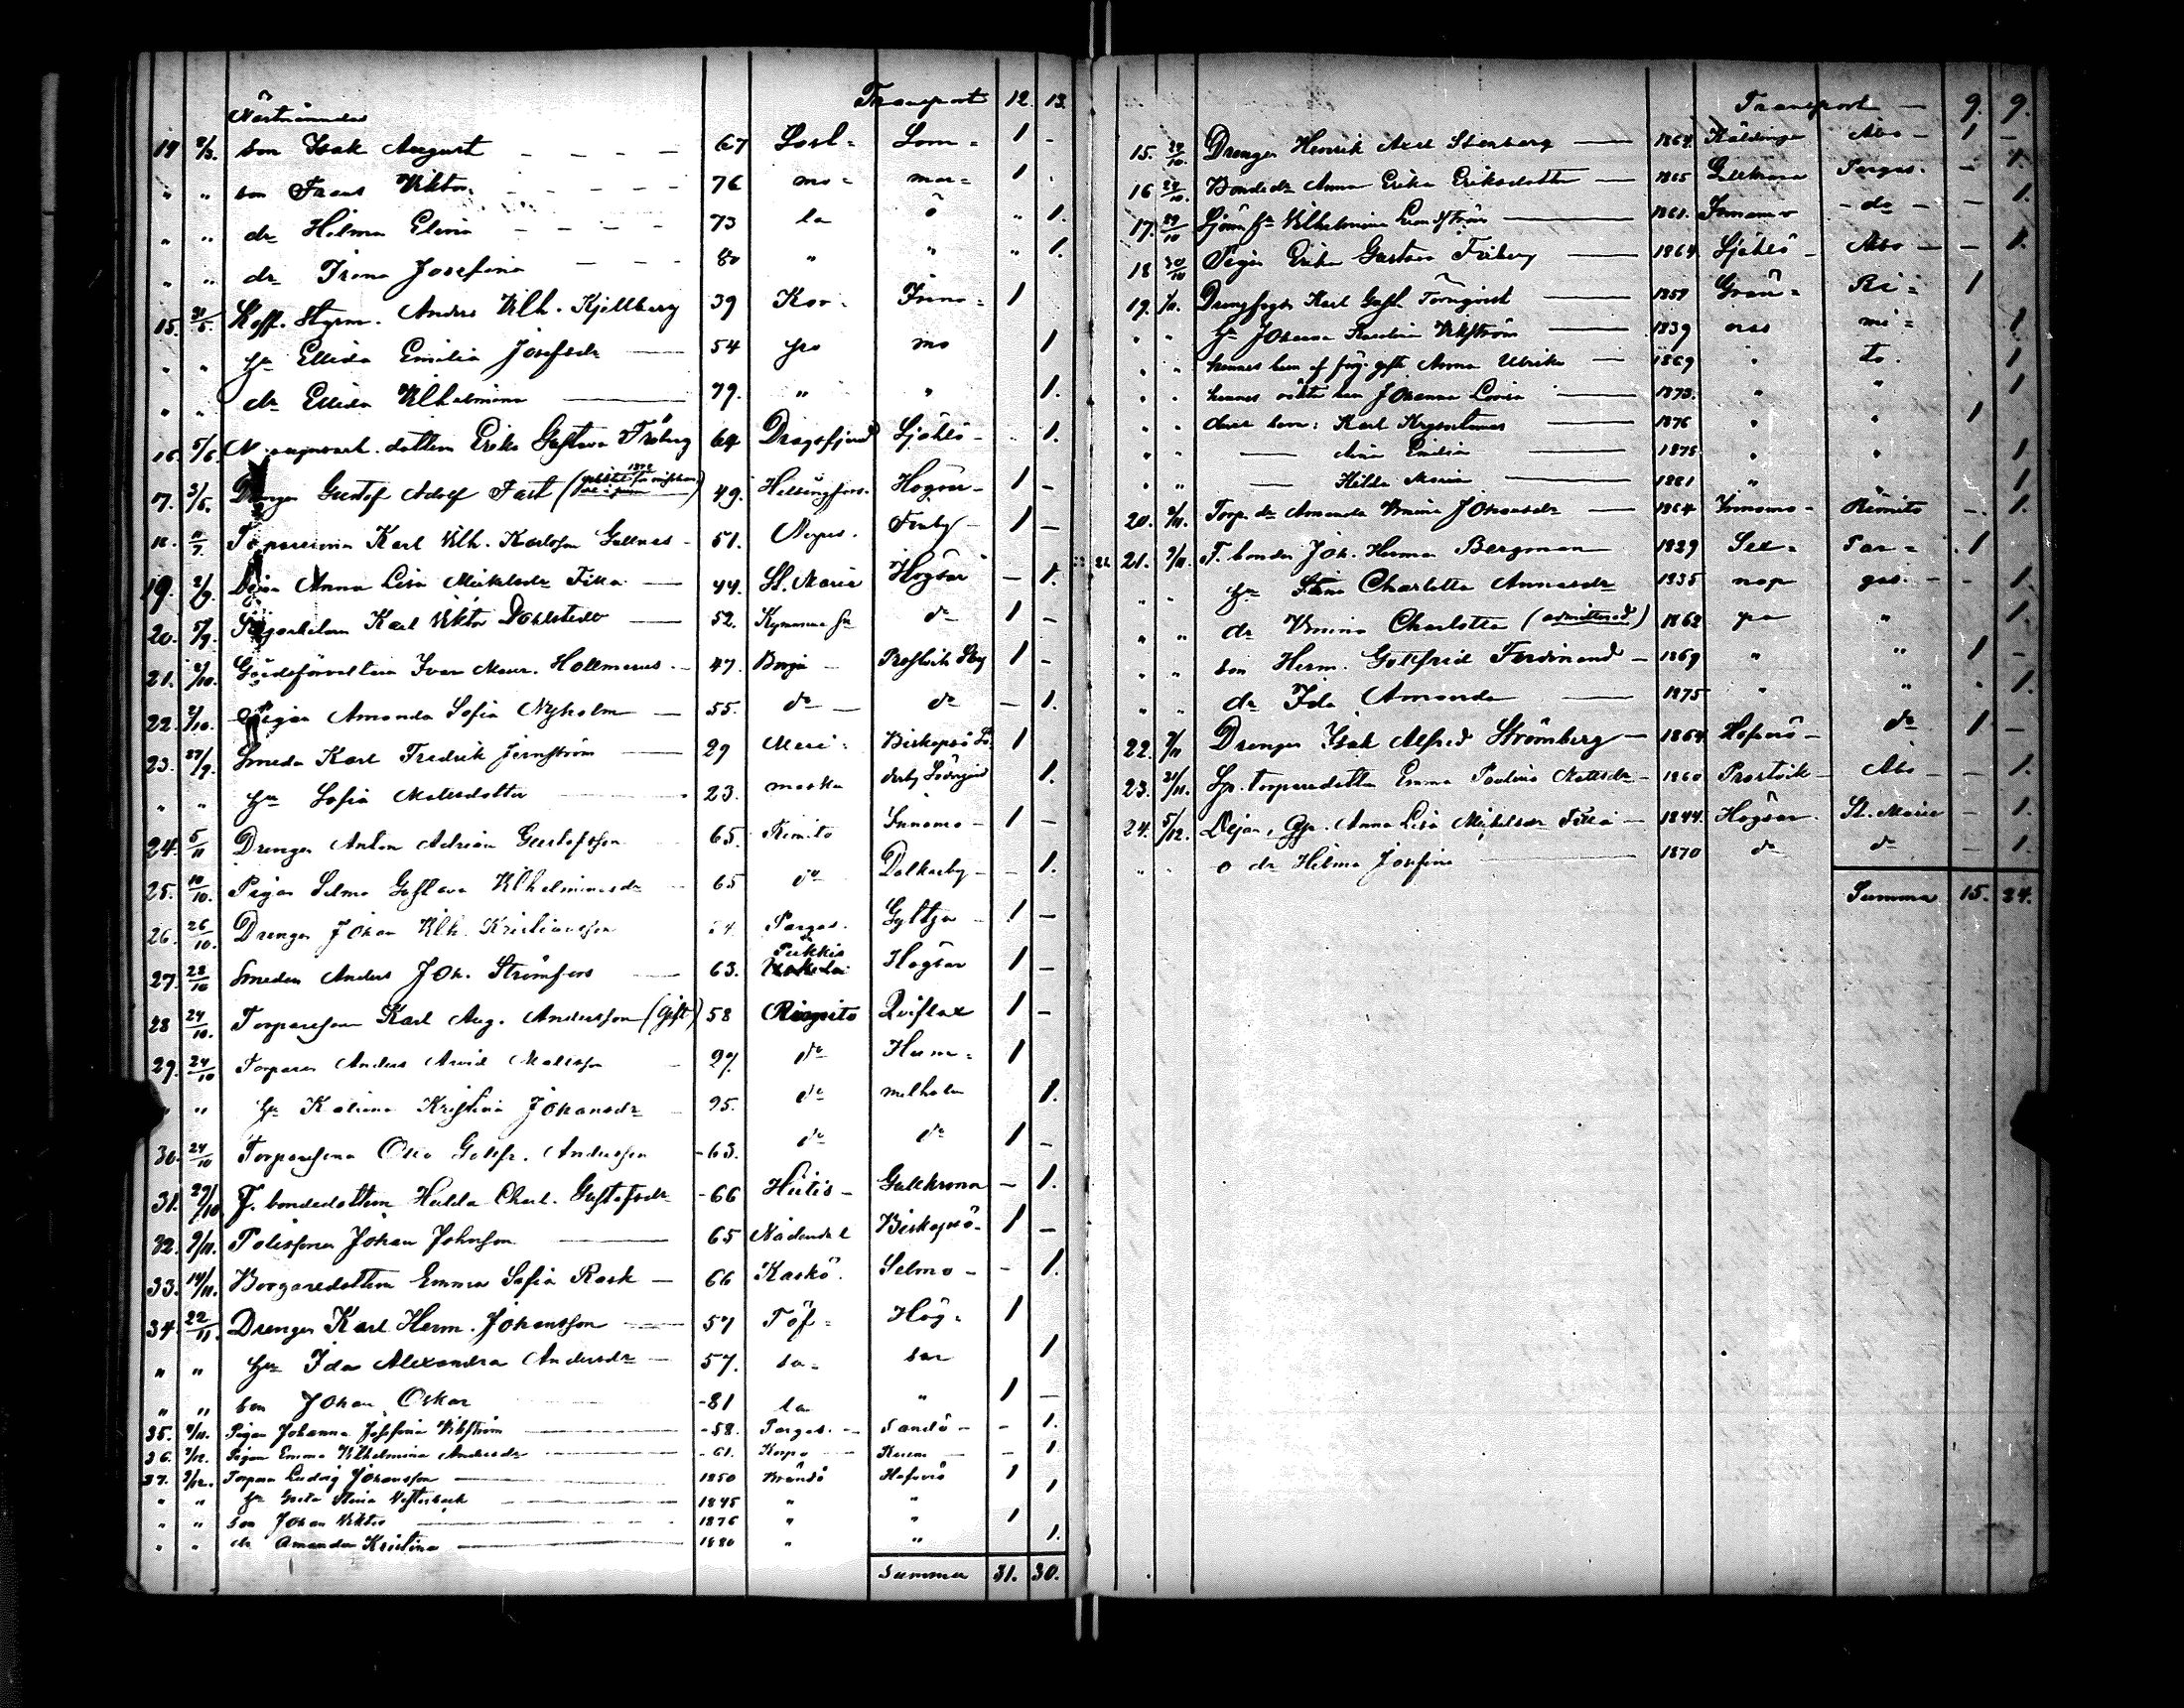 Transport 12 13.
14 2/3. son Isak August 67 Lom 1 -
" " son Frans Viktor 76 mo mar 1
" " dr Hilma Elina 73 la ö " 1.
" " dr Irena Josefina 80 " " " 1.
15. 31/5. Koff. Styrm. Anders Vilh. Kjellberg 39 Kor- Inno- 1
" " hu Elida Emilia Josefsdr 54 po mo 1
" " dr Elida Vilhelmina 79. " " 1.
16. 5/6. dottern Erika Gustava Friberg 64 Dragsfjerd Sjählö - 1.
17. 3/5. Drengen Gustaf Adolf Fast 49. Helsingfors. Högsar - 1 -
18. 11/7. Karl Vilh. Karlsson Gallnas - 51. Nerpes. Finby - 1 -
19. 2/9. Anna Lisa Mickelsdr Fika 44. St. Marie Högsar - 1.
20. 5/9. Karl Viktor Dahlstedt 52. Kymmene do 1 -
21. 2/10. Gårdsförvaltaren Ivar Maur. Hollmerus 47. Borgå 1 -
22. 2/10. Pigan Amanda Sofia Nyholm 55. do do - 1.
23. 27/9. Smeden Karl Fredrik Jernström 29 Meri- Biskopsö 1
" " hu Sofia Matsdotter 23. maska 1.
24. 5/11 Drengen Anton Adrian Gustafsson 65. Rimito Innamo - 1 -
25. 10/10. Pigan Selma Gustava Vilhelminasdr 65 do Dalkarby - - 1.
26. 26/10. Drengen Johan Vilh. Kristiansson Pargas. Gyltja 1 -
27. 28/10 Smeden Anders Joh. Strömfors 63. Pikkis Högsar 1 -
28 24/10. Torparesonen Karl Aug. Andersson (gift) 58 Rimito Qviflax 1 -
29. 24/10 Torparen Anders Arvid Matsson 27. do Hum- 1
" " hu Karina Kristina Johansdr 25. do melholm 1.
30. 24/10 Torparesonen Otto Gottfr. Andersson - 63. do do 1 -
31. 27/10 F. bondedottern Hulda Charl. Gustafsdr - 66 Hitis - Gullkrona - 1.
32. 9/11. Polissonen Johan Johnson 65 Nådendal Biskopsö. 1 -
33. 14/11. Borgaredottern Emma Sofia Rask - 66 Kaskö. Selmo - - 1.
34. 22/11. Drengen Karl Herm. Johansson 57 Töf- Hög- 1
" " hu Ida Alexandra Andersdr - 57. sa- sar 1
" " son Johan Oskar - 81 la " 1 -
35. 9/11. Pigan Johanna Josefina Vikström - 58. Pargas. Sandö - - 1.
36. 7/12. Pigan Emma Vilhelmina Andersdr - 61. Korpo - 1
37. 9/12. Torparen Ludvig Johansson 1850 Brändö Hafverö 1
" " hu Greta Stina Vesterback 1845 " " 1
" " son Johan Viktor 1876 " " 1
" " dr Amanda Kristina 1880 " " 1.
Summa 31. 30.
Transport - 9. 9.
15. 24/10. Drengen Henrik Axel Stenberg 1864. Käldinge Åbo - 1 -
16 24/10. Bondedr Anna Erika Eriksdotter 1865 Gullkrona Pargas. - 1.
17. 29/10 Vilhelmina Lindström 1861. Innamo - do - - 1.
18 30/10 Pigan Erika Gustava Friberg 1864 Sjählö - Åbo - - 1.
19. 1/11. Drengfogden Karl Gust. Törnqvist 1859 Grän- Ri- 1
" " hu Johanna Karolina Vikström 1839 mi- 1.
" " Anna Ulrika 1869 " to. 1
" " hennes äkta barn Johanna Lovisa 1873. " " 1
deras barn: Karl Krysostomus 1876 " " 1
" " Aina Emilia 1878 " " 1
" " Hilda Maria 1881 " 1
20. 2/11. Torp. dr Amanda Vmina Johansdr 1864 Innamo - Rimito - 1.
21. 9/11. F. bonden Joh. Herman Bergman 1829 Sex- Par- 1
" " hu Stina Charlotta Annasdr 1835 nap gas. - 1.
" " dr Vmina Charlotta (admitterad) 1862 pa " 1.
" " son Herm. Gottfrid Ferdinand - 1869 " " 1 -
" " dr Ida Amanda 1875 " " " 1.
22. 9/11 Drengen Isak Alfred Strömberg - 1864 Hafverö - do 1 -
23. 21/11. Sp. torparedottern Emma Paulina Mattsdr - 1860 Prostvik - Åbo - - 1.
24. 5/12. Dejan, Anna Lisa Mickelsdr Fika - 1844. Högsar. St. Marie - 1.
" " o dr Hilma Josefina 1870 do do - 1.
Summa 15. 24.